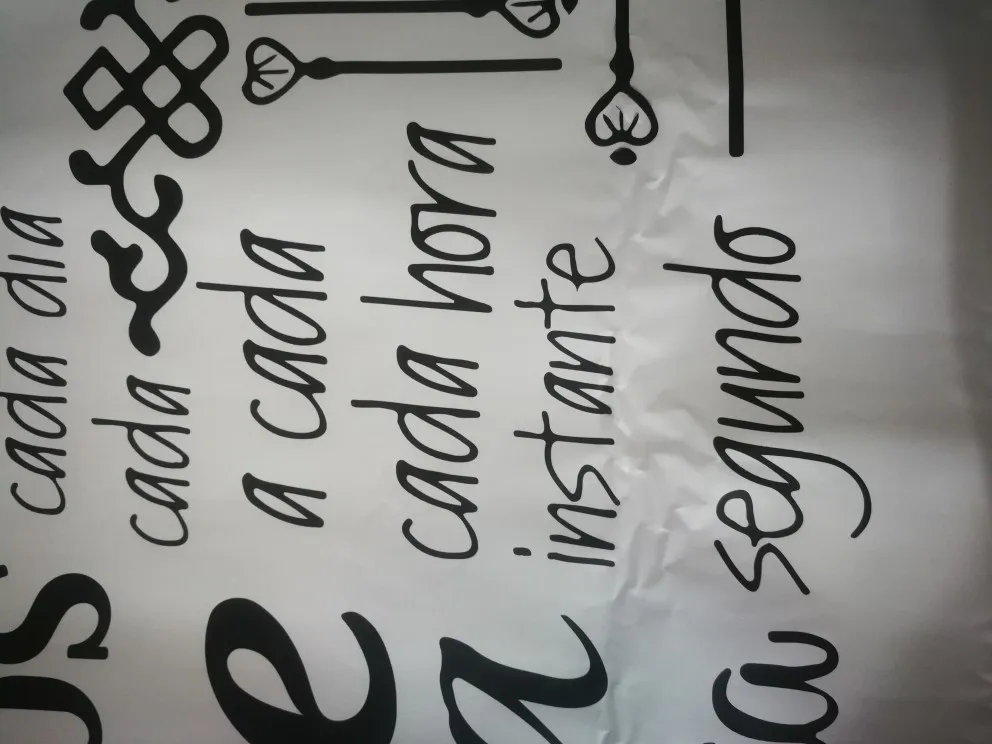 cada dia
cada
a cada
cada hora
instante
segundo